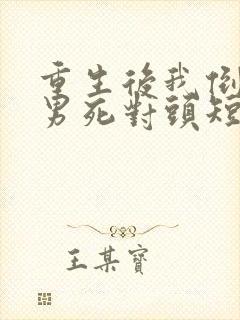 重生後我倒
男死對頭短
王某寶